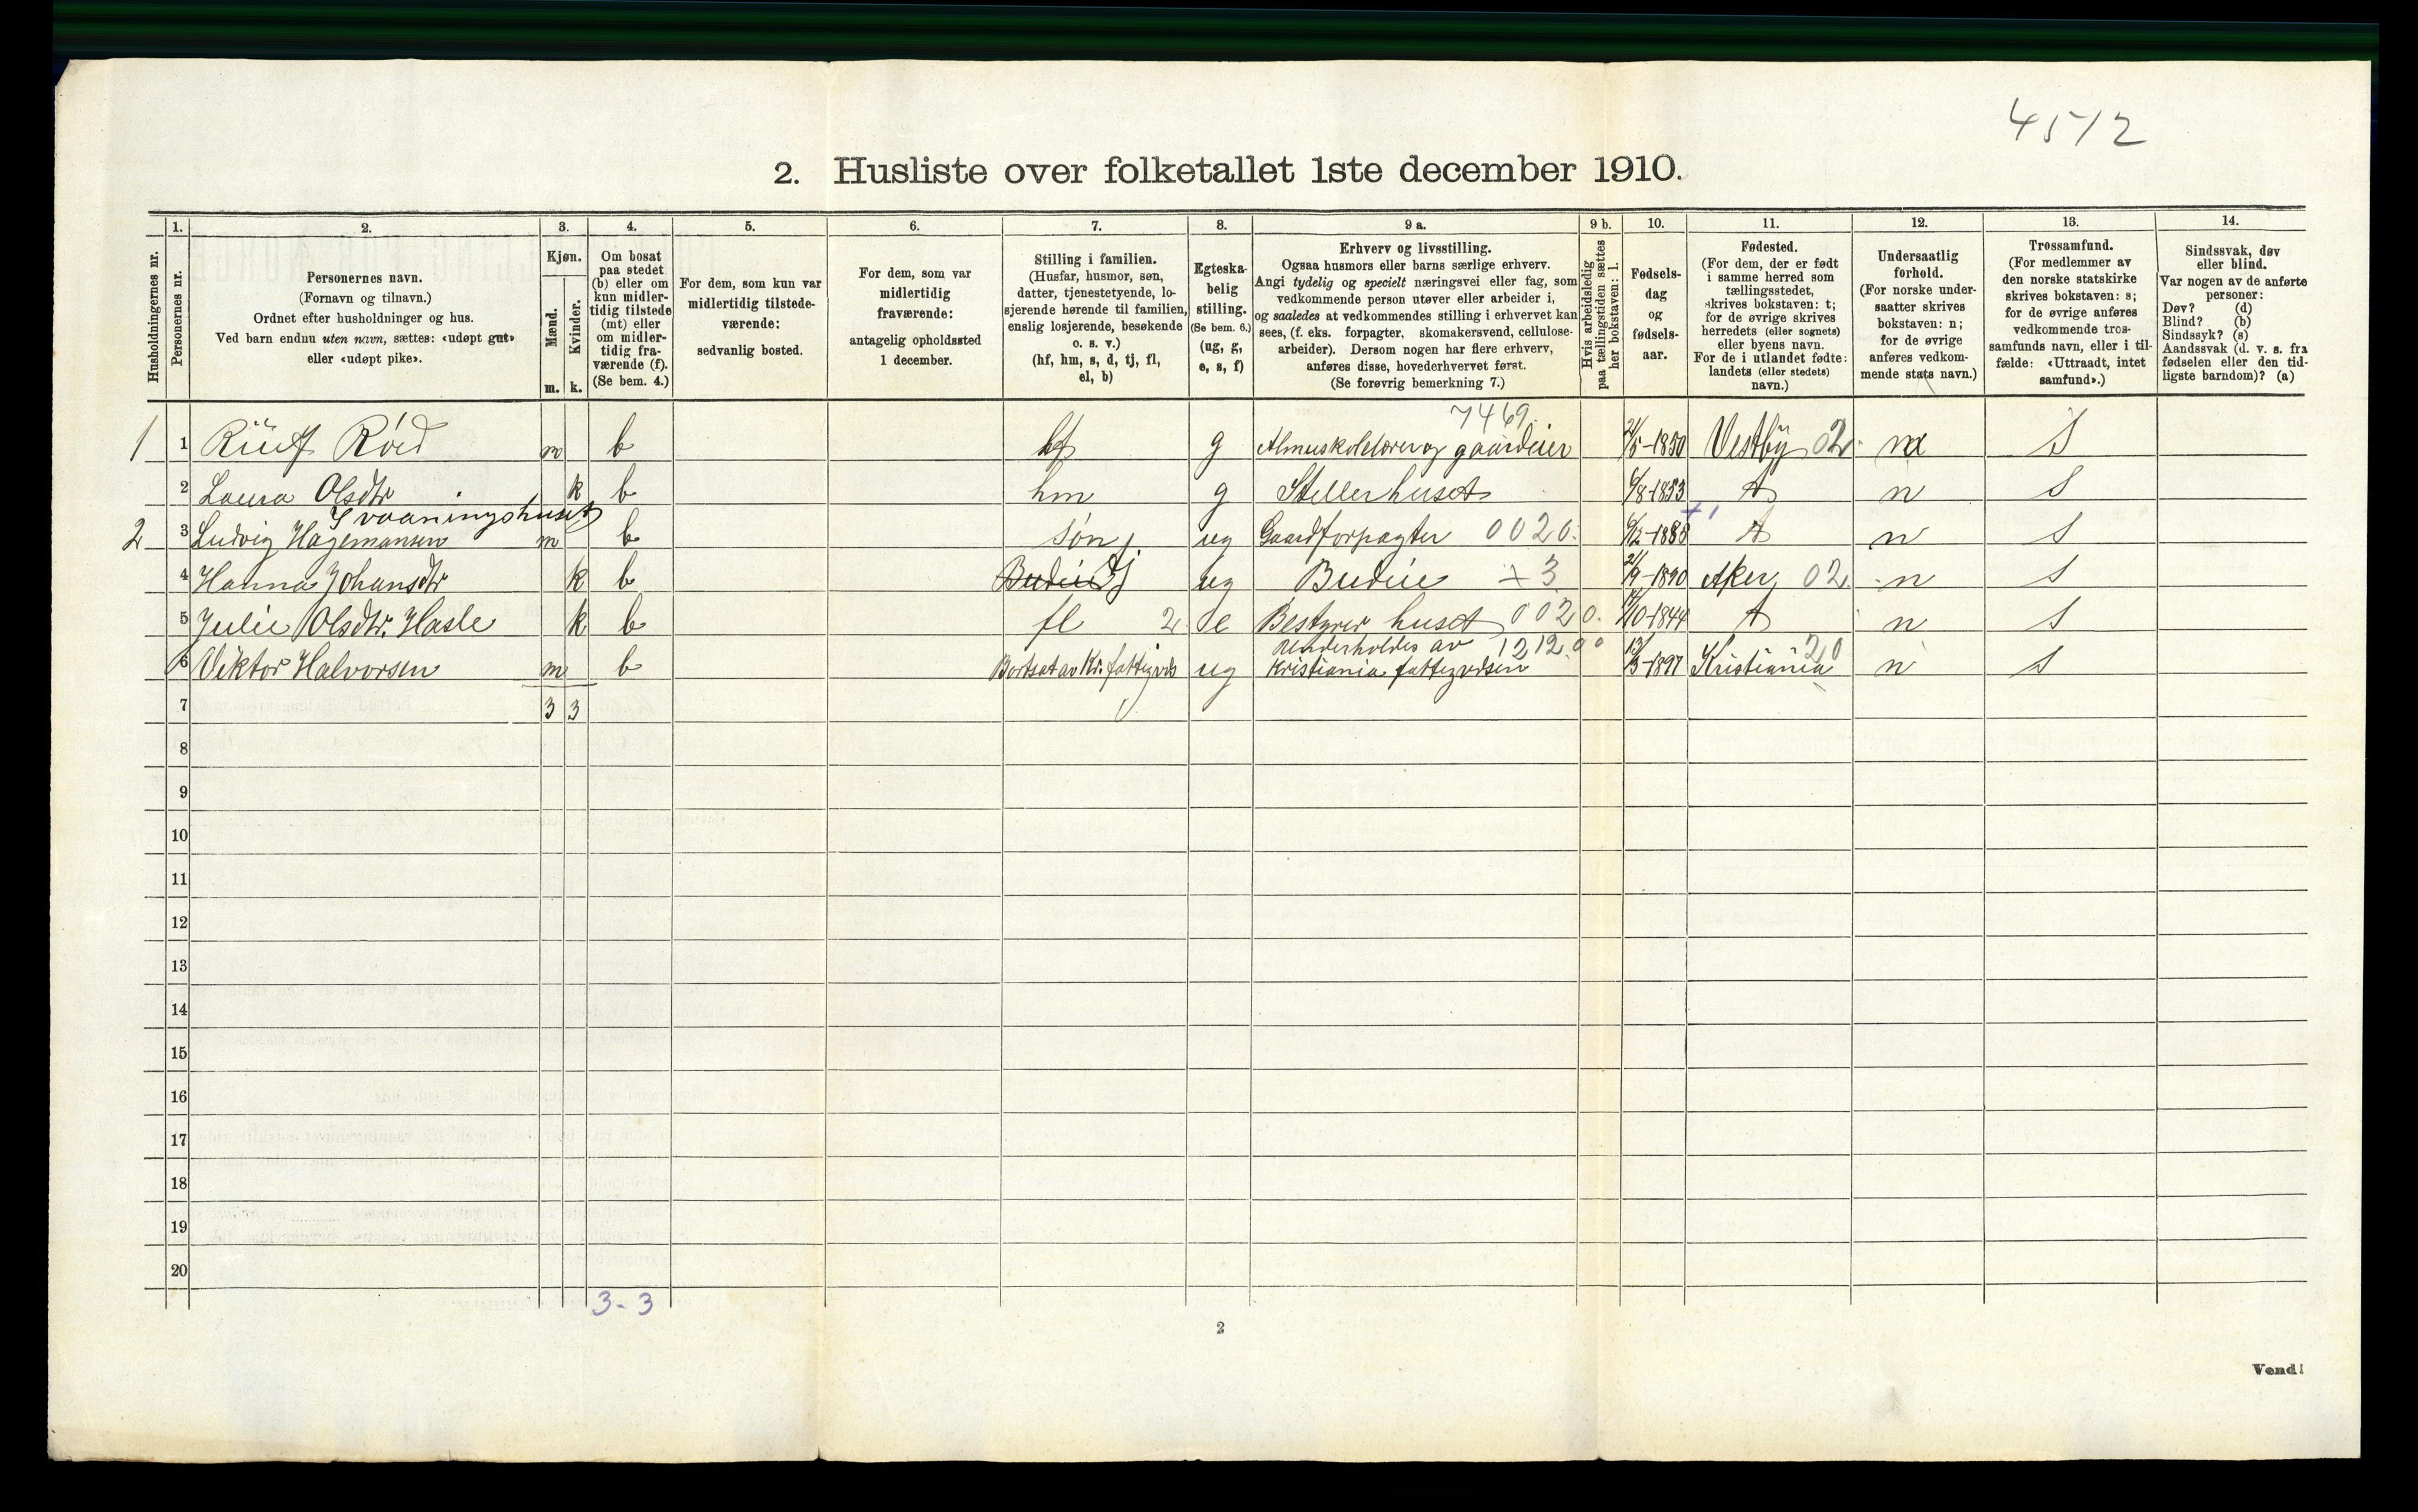 4572
2. Husliste over folketallet 1ste december 1910.
Husholdningernes nr.
1.
Personernes nr.
2.
Personernes navn.
(Fornavn og tilnavn.)
Ordnet efter husholdninger og hus.
Ved barn endnu uten navn, sættes: «udøpt gut»
eller «udøpt pike».
3.
Kjøn.
Mænd.
Kvinder.
m. k.
4.
Om bosat
paa stedet
(b) eller om
kun midler-
tidig tilstede
(mt) eller
om midler-
tidig fra-
værende (f).
(Se bem. 4.)
5.
For dem, som kun var
midlertidig tilstede-
værende:
sedvanlig bosted.
6.
For dem, som var
midlertidig
fraværende:
antagelig opholdssted
1 december.
7.
Stilling i familien.
(Husfar, husmor, søn,
datter, tjenestetyende, lo-
sjerende hørende til familien,
enslig losjerende, besøkende
o. s. v.)
(hf, hm, s, d, tj, fl,
el, b)
8.
Egteska-
belig
stilling.
(Se bem. 6.)
(ug, g,
e, s, f)
9 a.
Erhverv og livsstilling.
Ogsaa husmors eller barns særlige erhverv.
Angi tydelig og specielt næringsvei eller fag, som
vedkommende person utøver eller arbeider i,
og saaledes at vedkommendes stilling i erhvervet kan
sees, (f. eks. forpagter, skomakersvend, cellulose-
arbeider). Dersom nogen har flere erhverv,
anføres disse, hovederhvervet først.
(Se forøvrig bemerkning 7.)
9 b.
Hvis arbeidsledig
paa tællingstiden sættes
her bokstaven: l.
10.
Fødsels-
dag
og
fødsels-
aar.
11.
Fødested.
(For dem, der er født
i samme herred som
tællingsstedet,
skrives bokstaven: t;
for de øvrige skrives
herredets (eller sognets)
eller byens navn.
For de i utlandet fødte:
landets (eller stedets)
navn.)
12.
Undersaatlig
forhold.
(For norske under-
saatter skrives
bokstaven: n;
for de øvrige
anføres vedkom-
mende stats navn.)
13.
Trossamfund.
(For medlemmer av
den norske statskirke
skrives bokstaven: s;
for de øvrige anføres
vedkommende tros-
samfunds navn, eller i til-
fælde: «Uttraadt, intet
samfund».)
14.
Sindssvak, døv
eller blind.
Var nogen av de anførte
personer:
Døv? (d)
Blind? (b)
Sindssyk? (s)
Aandssvak (d. v. s. fra
fødselen eller den tid-
ligste barndom)? (a)
7469.
1 1 Røed m b hf g gaardeier 21/5-1850 Vestby 02. n S
2 Laura Olsdtr. k b hm g Steller huset 6/8-1853 t n S
I vaaningshuset
2 3 Ludvig Hagemansen m b søn ug Gaardforpagter 0020. 6/12-1888 t n S
4 Hanna Johansdtr k b Budeie tj ug Budeie +3 21/9-1890 Aker 02. n S
5 Julie Olsdtr. Hasle k b fl 2 e Bestyrer huset 0020. /10-1844 t n S
Underholdes av 1212.00
6 Viktor Halvorsen m b Bortsat av Kr. fattigvds ug Kristiania fattigvdsen 13/3-1897 Kristiania 20 n S
7 3 3
8
9
10
11
12
13
14
15
16
17
18
19
20
3-3
2
Vend!